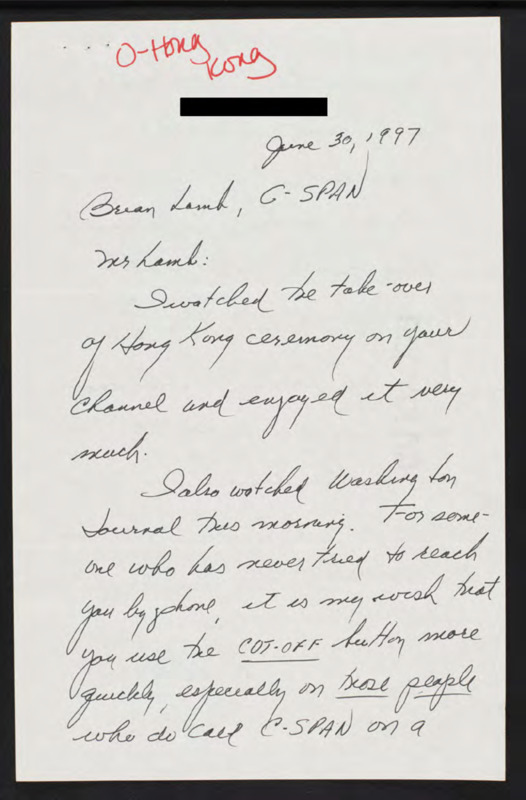 O-Hong
Kong
June 30, 1997
Brian Lamb, C-SPAN
Mr Lamb:
I watched the take-over
of Hong Kong ceremony on your
channel and enjoyed it very
much.
I also watched Washington
Journal this morning. For some-
one who has never tried to reach
you by phone, it is my wish that
you use the CUT-OFF button more
quickly, especially on those people
who do call C-SPAN on a